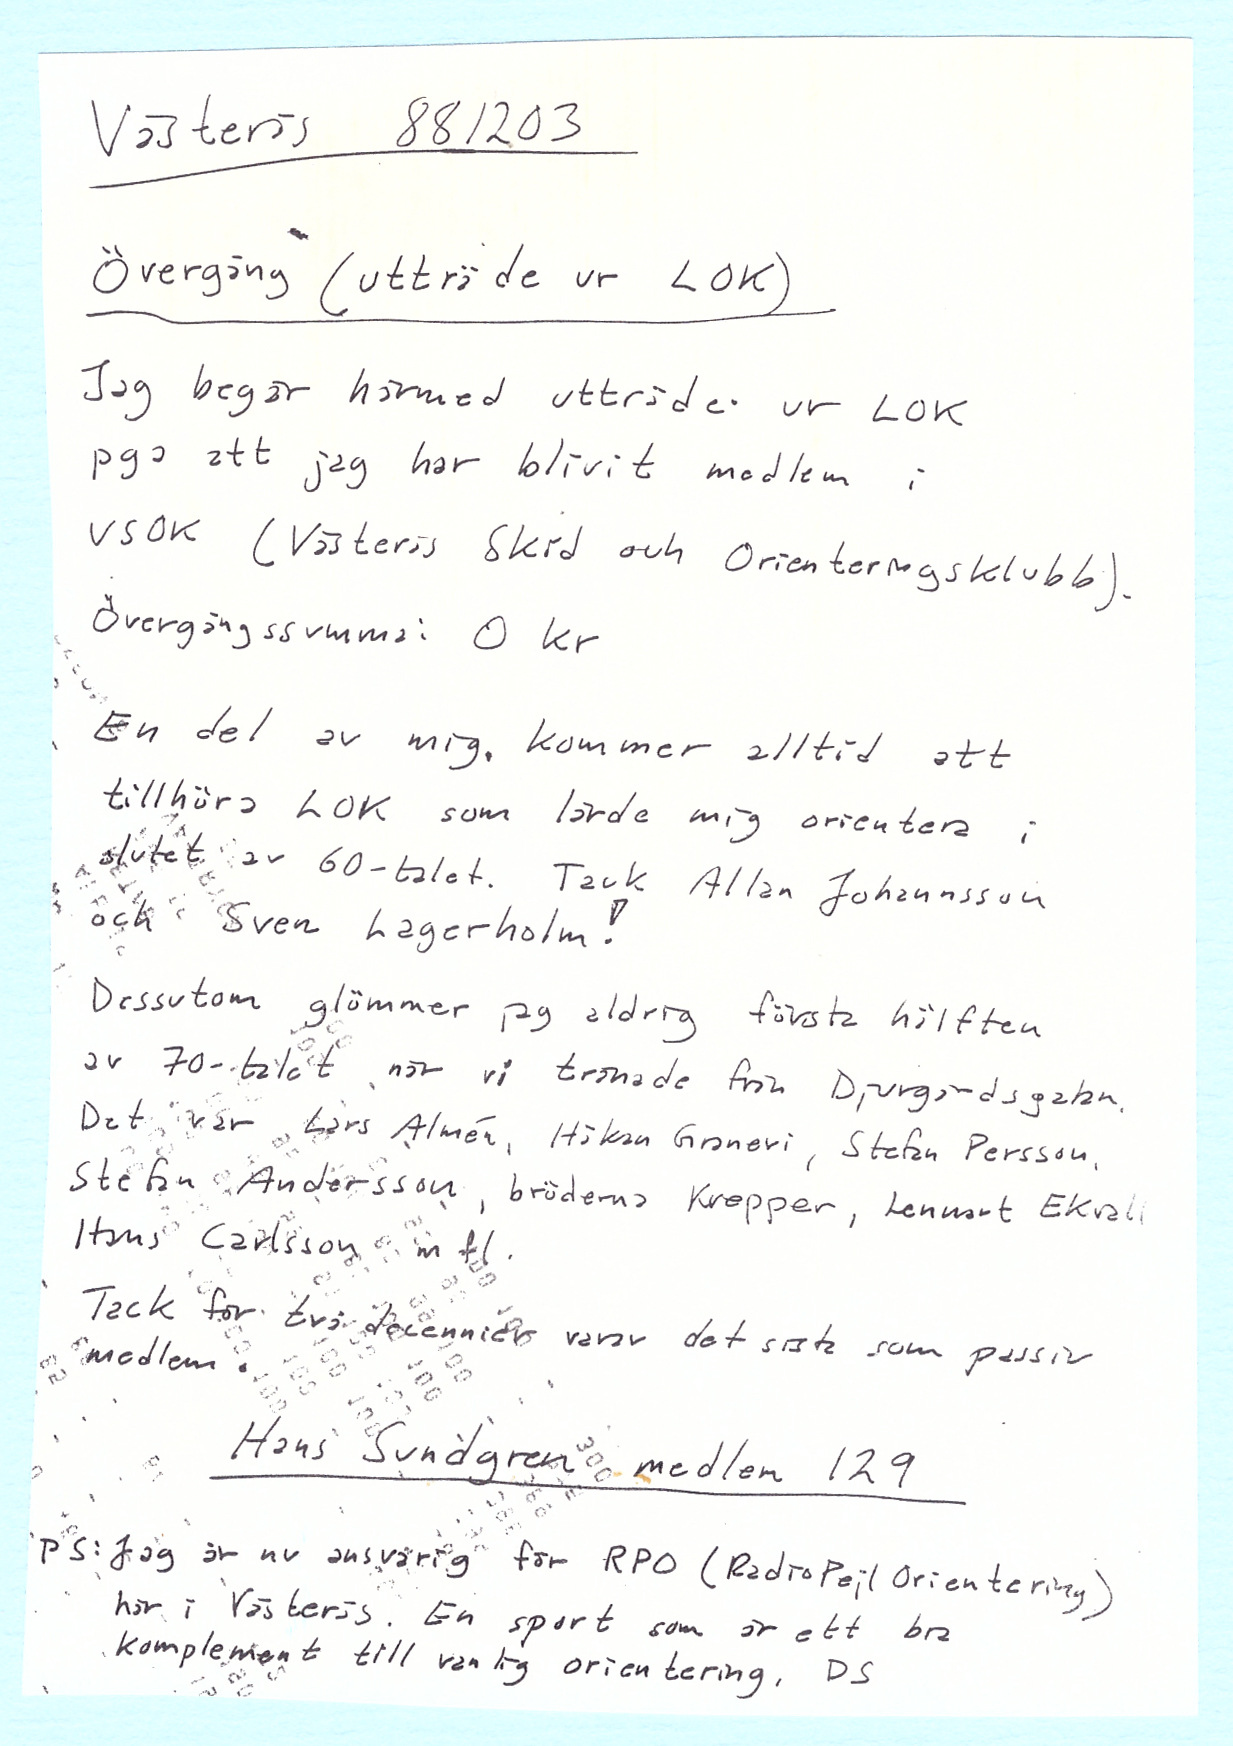 Västerås 881203
Övergång (utträde ur LOK)
Jag begär härmed utträde ur LOK
pga att jag har blivit medlem i
VSOK (Västerås Skid och Orienteringsklubb).
Övergångssumma: 0 kr
En del av mig kommer alltid att
tillhöra LOK som lärde mig orientera i
slutet av 60-talet. Tack Allan Johannsson
och Sven Lagerholm!
Dessutom glömmer jag aldrig första hälften
av 70-talet när vi tränade från Djurgårdsgatan.
Det var Lars Almén, Håkan Graneri, Stefan Persson,
Stefan Andersson, bröderna Krepper, Lennart Ekvall
Hans Carlsson m fl.
Tack för två decennier varav det sista som passiv
medlem.
Hans Sundgren medlem 129
PS: Jag är nu ansvarig för RPO (RadioPejlOrientering)
här i Västerås. En sport som är ett bra
komplement till vanlig orientering. DS